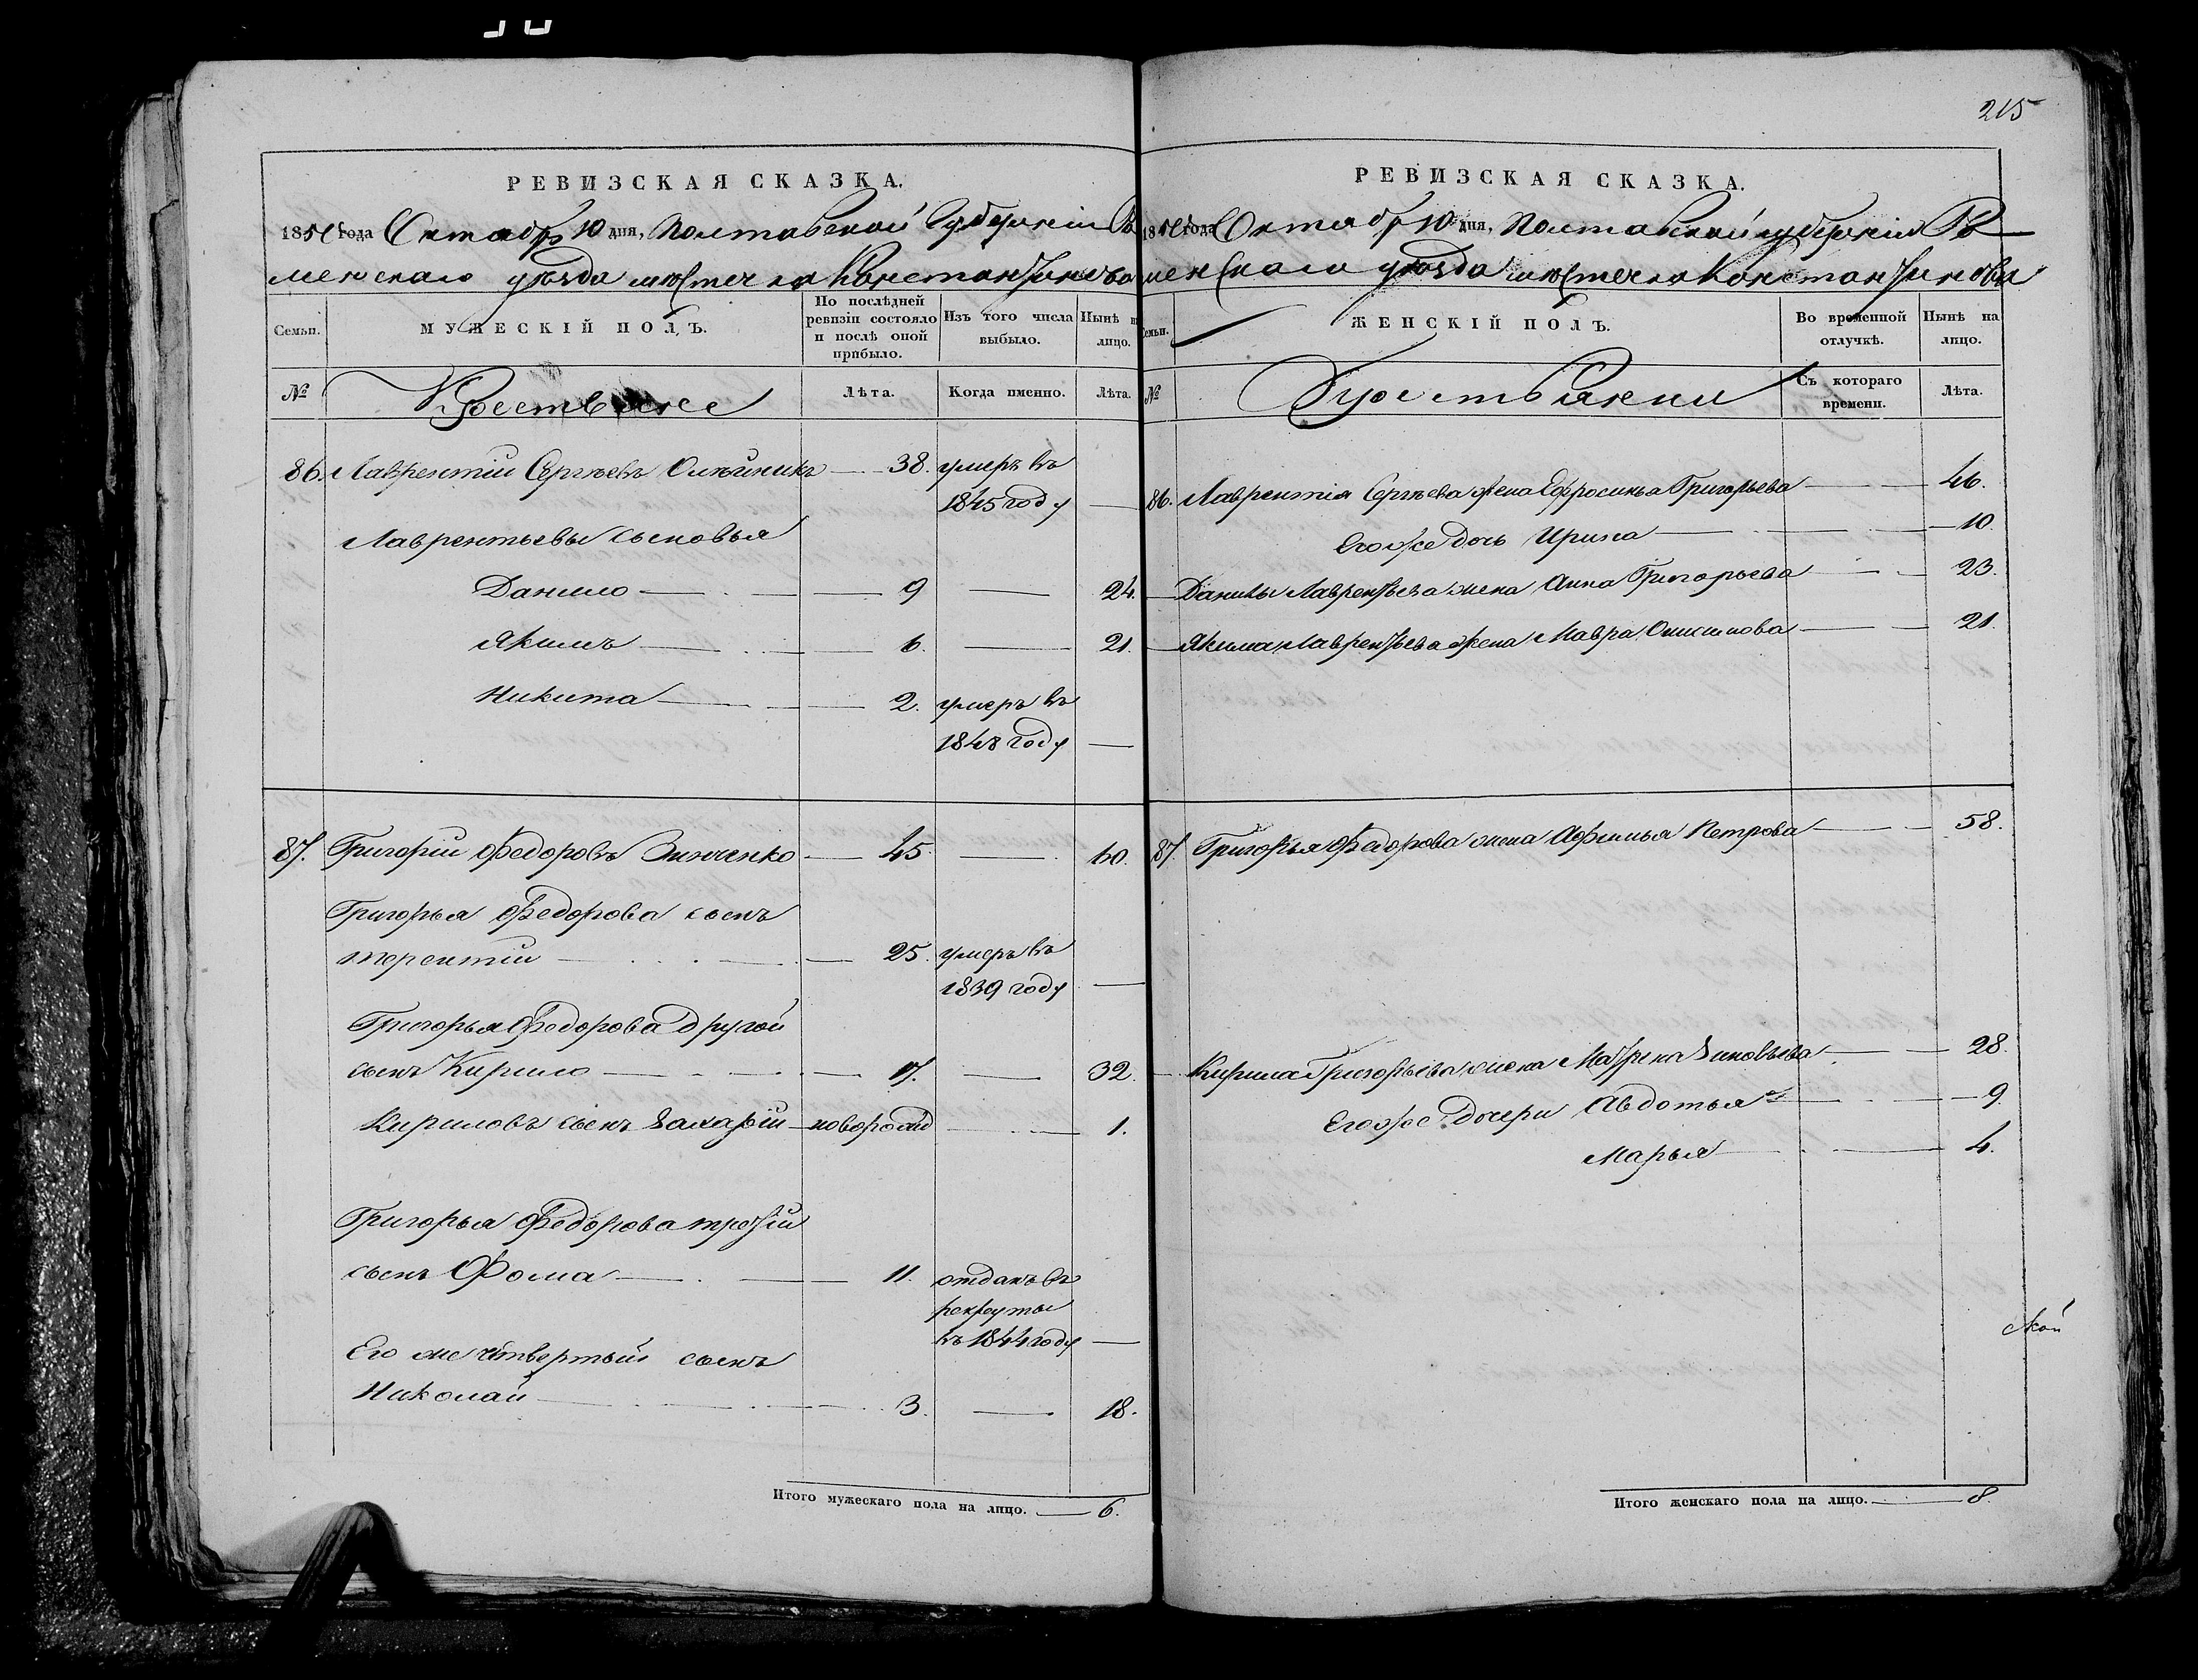 215
РЕВИЗСКАЯ СКАЗКА.
1850 года Октября 10 дня, Полтавской Губерніи Ро
менскаго уѣзда мѣстечка Константинова
Семьи.
МУЖЕСКІЙ ПОЛЪ.
По послѣдней ревизіи состояло и послѣ оной прибыло.
Изъ того числа выбыло.
Нынѣ на лицо.
№
Крестьяне
Лѣта.
Когда именно.
Лѣта.
86. Лаврентій Сергѣевъ Олѣйникъ — 38. умеръ въ
1845 году —
Лаврентьевы сыновья
Данило — 9 — 24.
Якимъ — 6. — 21.
Никита — 2. умеръ въ
1848 году —
87. Григорій Федоровъ Зинченко — 45. — 60.
Григорья Федорова сынъ
Терентій — 25. умеръ въ
1839 году —
Григорья Федорова другой
сынъ Кирило — 17. — 32.
Кириловъ сынъ Захарій — новорожд — 1.
Григорья Федорова третій
сынъ Фома — 11. отданъ въ
рекруты
въ 1844 году —
Его же четвертый сынъ
Николай — 3. — 18.
Итого мужескаго пола на лицо. — 6.
РЕВИЗСКАЯ СКАЗКА.
1850 года Октября 10 дня, Полтавской губерніи Ро
менскаго уѣзда мѣстечка Константинова
Семьи.
ЖЕНСКІЙ ПОЛЪ.
Во временной отлучкѣ.
Нынѣ на лицо.
№
Крестьянки
Съ котораго времени.
Лѣта.
86. Лаврентія Сергѣева жена Ефросинья Григорьева — 46.
Его же дочь Ирина — 10.
Данилы Лаврентьева жена Анна Григорьева — 23.
Якима Лаврентьева жена Мавра — 21.
87. Григорья Федорова жена Афимья Петрова — 58.
Кирила Григорьева жена Матрена Зиновьева — 28.
Его же дочери Авдотья — 9.
Марья — 4.
Итого женскаго пола на лицо. — 8.